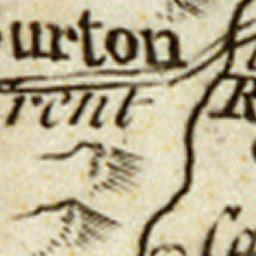 urton
rent
R